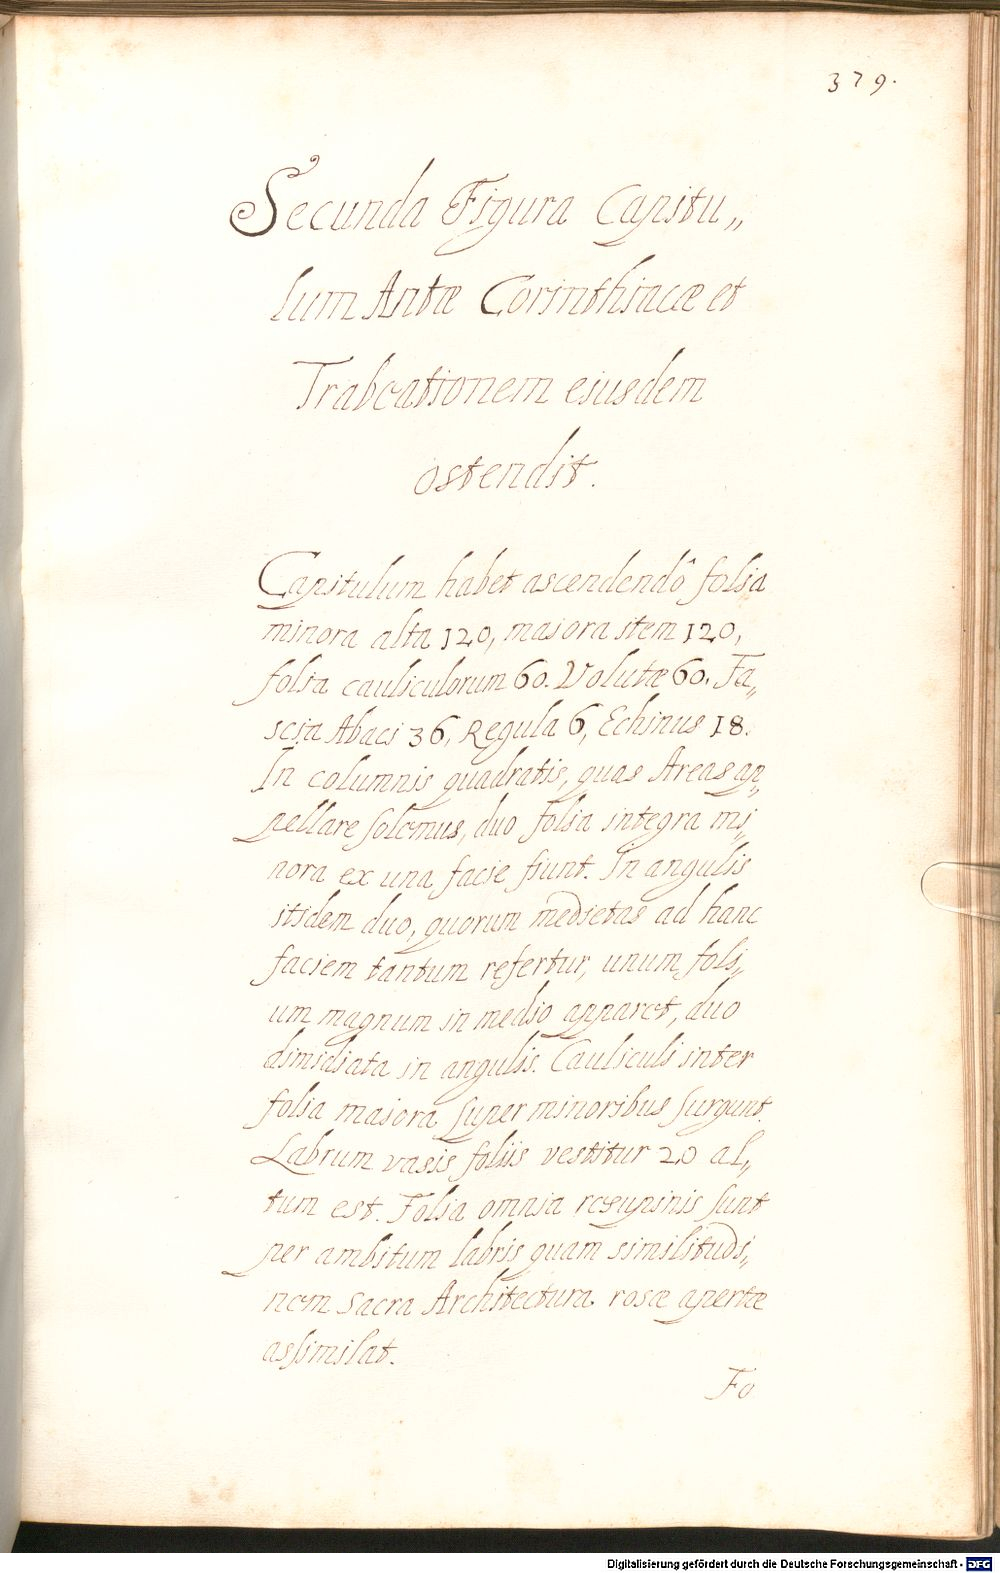 379.
Secunda Figura Capitu„
lum Antæ Corinthiacæ et
Trabeationem eiusdem
ostendit.
Capitulum habet ascendendô folia
minora alta 120, maiora item 120,
folia cauliculorum 60. Volutæ 60. Fa„
scia Abaci 36, Regula 6, Echinus 18.
In columnis quadratis, quas Areas ap„
pellare solemus, duo folia integra mi„
nora ex una facie fiunt. In angulis
itidem duo, quorum medietas ad hanc
faciem tantum refertur, unum foli„
um magnum in medio apparet, duo
dimidiata in angulis. Cauliculi inter
folia maiora super minoribus surgunt.
Labrum vasis foliis vestitur 20 al„
tum est. Folia omnia resupinis sunt
per ambitum labris quam similitudi„
nem sacra Architectura rosæ apertæ
assimilat.
Fo
Digitalisierung gefördert durch die Deutsche Forschungsgemeinschaft - DFG